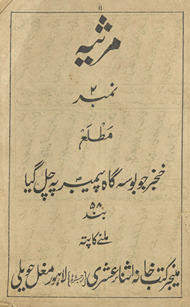 مرثیہ
نمبر ۲
مطلع
خنجر جو بوسہ گاہ پیمبرؐ پہ چل گیا
۵۸
بند
ملنے کا پتہ
منیجر کتب خانہ اثنا عشری (رجسٹرڈ) لاہور مغل حویلی